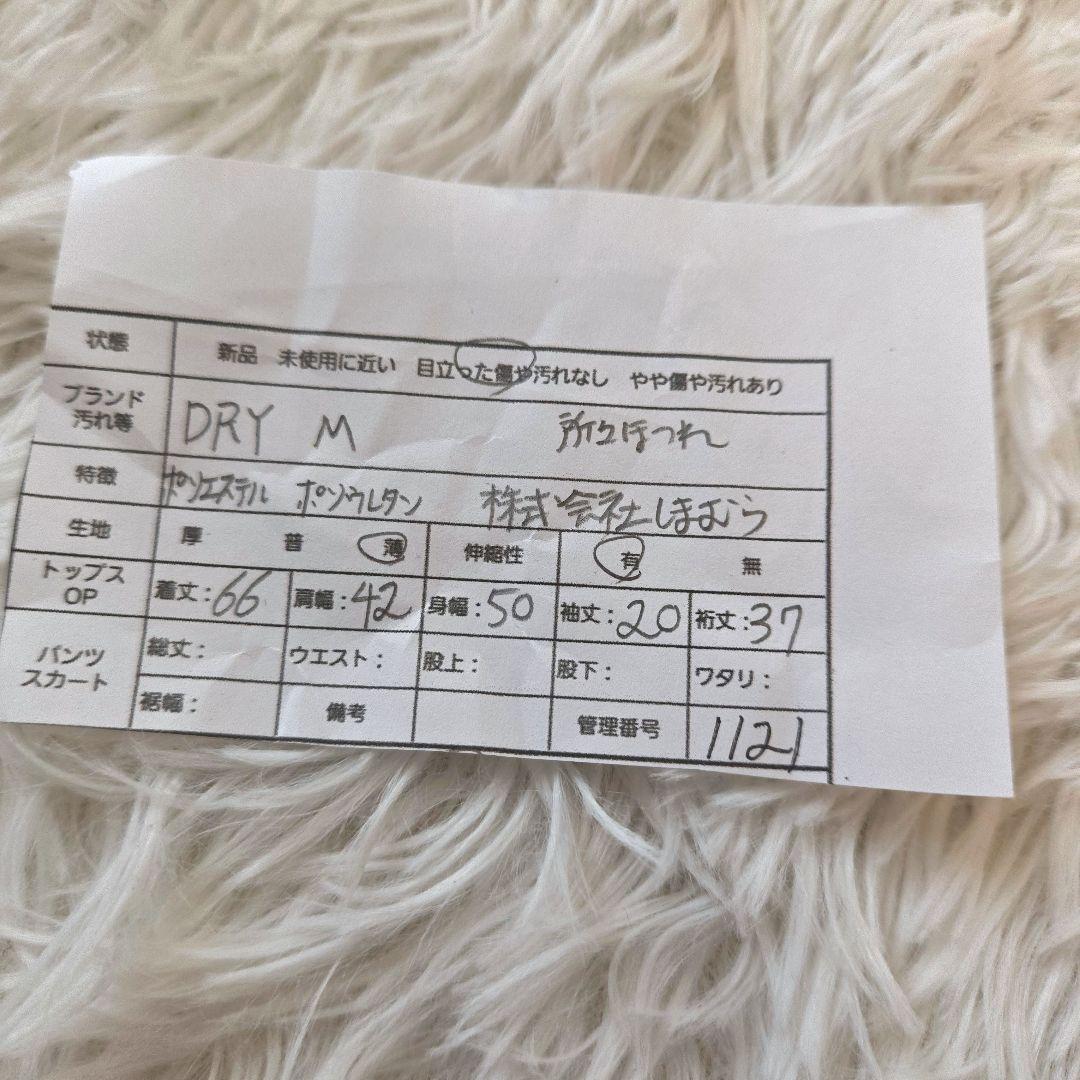 状態 新品 未使用に近い 目立った傷や汚れなし やや傷や汚れあり
ブランド
汚れ等 DRY M 所々ほつれ
特徴 ポリエステル ポリウレタン 株式会社しまむら
生地 厚 普 薄 伸縮性 有 無
トップス
OP 着丈:66 肩幅:42 身幅:50 袖丈:20 裄丈:37
パンツ
スカート 総丈: ウエスト: 股上: 股下: ワタリ:
裾幅: 備考 管理番号 1121